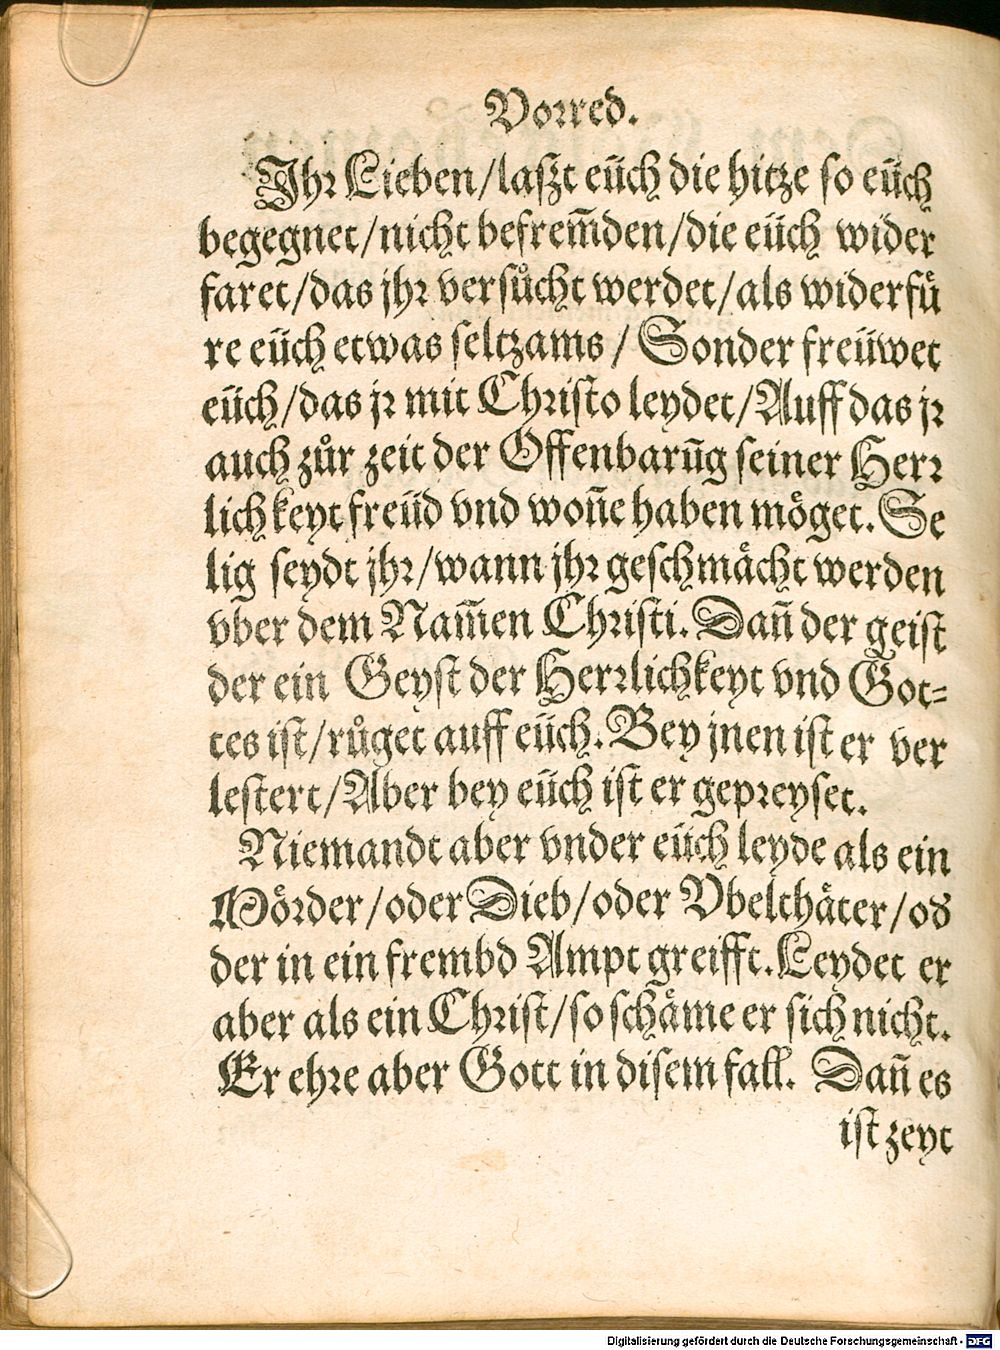 Vorred.
Jhr Lieben/laszt eüch die hitze so eüch
begegnet/nicht befrem̄den/die eüch wider
faret/das jhr versůcht werdet/als widerfü
re eüch etwas seltzams/ Sonder freüwet
eüch/das jr mit Christo leydet/Auff das jr
auch zůr zeit der Offenbarūg seiner Herr
lichkeyt freüd vnd won̄e haben möget. Se
lig seydt jhr/wann jhr geschmächt werden
vber dem Nam̄en Christi. Dan̄ der geist
der ein Geyst der Herrlichkeyt vnd Got-
tes ist/růget auff eüch. Bey jnen ist er ver
lestert/Aber bey eüch ist er gepreyset.
Niemandt aber vnder eüch leyde als ein
Mörder/oder Dieb/oder Vbelthäter/od
der in ein frembd Ampt greifft. Leydet er
aber als ein Christ/so schäme er sich nicht.
Er ehre aber Gott in disem fall. Dan̄ es
ist zeyt
Digitalisierung gefördert durch die Deutsche Forschungsgemeinschaft - DFG